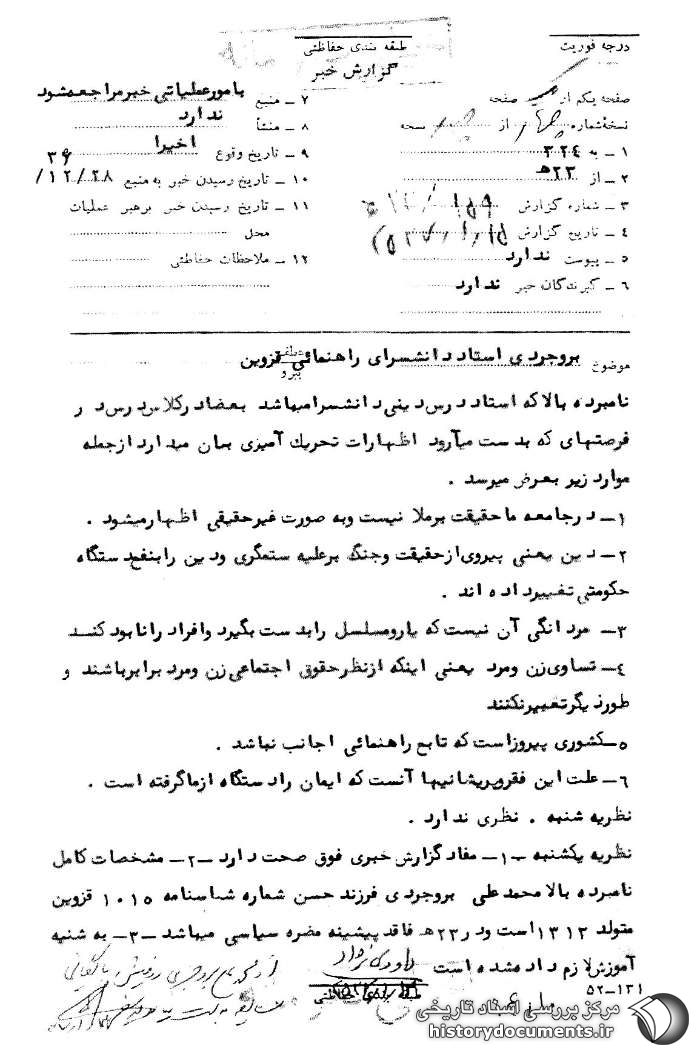 درجه فوریت
طبقه بندی حفاظتی
گزارش خبر
صفحه یکم از صفحه
نسخهٔ شماره از نسخه
۱ ـ به ۳۲٤
۲ ـ از ۲۳ هـ
۳ ـ شماره گزارش
٤ ـ تاریخ گزارش
۵ ـ پیوست ندارد
۶ ـ گیرندگان خبر ندارد
۷ ـ منبع بامورعملیاتی خبرمراجعه شود
۸ ـ منشأ ندارد
۹ ـ تاریخ وقوع اخیرا
۱۰ ـ تاریخ رسیدن خبر به منبع ۳۶/۱۲/۲۸
۱۱ ـ تاریخ رسیدن خبر برهبر عملیات
محل
۱۲ ـ ملاحظات حفاظتی
موضوع بروجردی استاد دانشسرای راهنمائی قزوین
عطف
پیرو
نامبرده بالاکه استاد درس دینی دانشسرامیباشد بعضادرکلاس درس در
فرصتهای که بدست میآرود اظهارات تحریک آمیزی بیان میدارد ازجمله
موارد زیر بعرض میرسد .
۱ـ درجامعه ماحقیقت برملا نیست وبه صورت غیرحقیقی اظهارمیشود .
۲ـ دین یعنی پیروی ازحقیقت وجنگ برعلیه ستمگری ودین رابنفع دستگاه
حکومتی تغییرداده اند .
۳ـ مردانگی آن نیست که یارومسلسل رابدست بگیرد وافراد رانابود کنند
٤ـ تساوی زن ومرد یعنی اینکه ازنظرحقوق اجتماعی زن ومرد برابرباشند و
طوردیگرتعبیرنکنند
۵ـ کشوری پیروزاست که تابع راهنمائی اجانب نباشد .
۶ـ علت این فقروپریشانیها آنست که ایمان رادستگاه ازماگرفته است .
نظریه شنبه . نظری ندارد .
نظریه یکشنبه ـ۱ـ مفادگزارش خبری فوق صحت دارد ـ۲ـ مشخصات کامل
نامبرده بالامحمدعلی بروجردی فرزند حسن شماره شناسنامه ۱۰۱۵ قزوین
متولد ۱۳۱۲ است ودر۲۳هـ فاقد پیشینه مضره سیاسی میباشد ـ۳ـ به شنبه
آموزش لازم داده شده است
داوری نژاد
طبقه بندی حفاظتی
۵۲ـ۱۳۱
مرکز بررسی اسناد تاریخی
historydocuments.ir